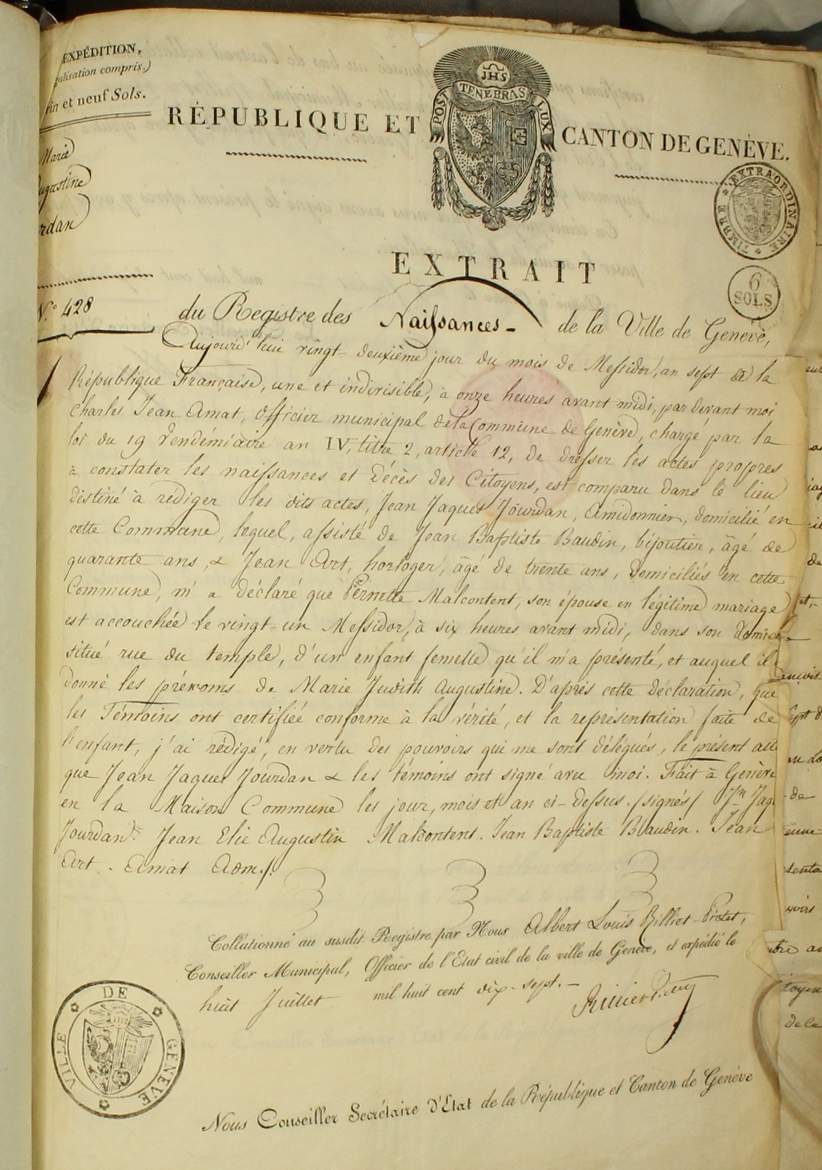 EXPÉDITION,
alisation compris.)
un et neuf Sols.
Marie
Augustine
rdan
N.° 428
JHS
POST TENEBRAS LUX
RÉPUBLIQUE ET CANTON DE GENÈVE.
TIMBRE EXTRAORDINAIRE
6
SOLS
EXTRAIT
du Registre des Naissances de la Ville de Genève,
Aujourd'hui vingt-deuxième jour du mois de Messidor, an sept de la
République Française, une et indivisible, à onze heures avant midi, par devant moi
Charles Jean Amat, Officier municipal de la Commune de Genève, chargé par la
loi du 19 Vendémiaire an IV, titre 2, article 12, de dresser les actes propres
à constater les naissances et décès des Citoyens, est comparu dans le lieu
destiné à rédiger les dits actes, Jean Jaques Jourdan, Amidonnier, domicilié en
cette Commune, lequel, assisté de Jean Baptiste Baudin, bijoutier, âgé de
quarante ans, & Jean Art, horloger, âgé de trente ans, domiciliés en cette
Commune, m'a déclaré que Pernette Malcontent, son épouse en légitime mariage,
est accouchée le vingt-un Messidor, à six heures avant midi, dans son domicile
situé rue du temple, d'un enfant femelle qu'il m'a présenté, et auquel il
donné les prénoms de Marie Judith Augustine. D'après cette déclaration, que
les Témoins ont certifiée conforme à la vérité, et la représentation faite de
l'enfant, j'ai rédigé, en vertu des pouvoirs qui me sont délégués, le présent acte
que Jean Jaques Jourdan & les témoins ont signé avec moi. Fait à Genève
en la Maison Commune les jour, mois et an ci-dessus. (signés) Jn Jaq
Jourdan. Jean Elie Augustin Malcontent. Jean Baptiste Baudin. Jean
Art. Amat Adm.
Collationné au susdit Registre, par Nous Albert Louis Billiet-Pictet,
Conseiller Municipal, Officier de l'Etat civil de la ville de Genève, et expédié le
huit Juillet mil huit cent dix-sept.
VILLE DE GENÈVE
Nous Conseiller Secrétaire d'Etat de la République et Canton de Genève